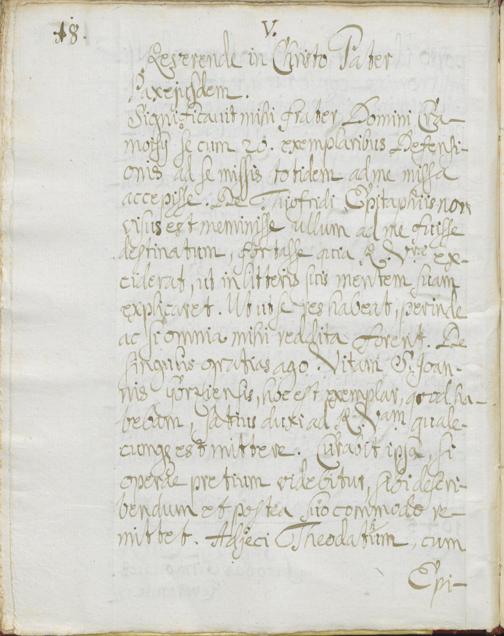 18.
V.
Reverende in Christo Pater
Pax ejusdem.
Significavit mihi frater Domini Cra-
moisy se cum 26. exemplaribus Defensi-
onis ad se missis totidem ad me missa
accepisse. De Thiofridi Epitaphiis non
visus est meminisse ullum ad me fuisse
destinatum, fortasse quia R. Vræ ex-
ciderat, ut in litteris suis mentem suam
explicaret. Ut ut se res habeat, perinde
ac si omnia mihi reddita forent. De
singulis gratias ago. Vitam S. Joan-
nis Gorziensis, hoc est exemplar, quod ha-
bebam, satius duxi ad R. Vam quale-
cunq est mittere. Curabit ipsa, si
operæ pretium videbitur, sibi descri-
bendum et postea suo commodo re-
mittet. Adjeci Theodatum, cum
Epi-